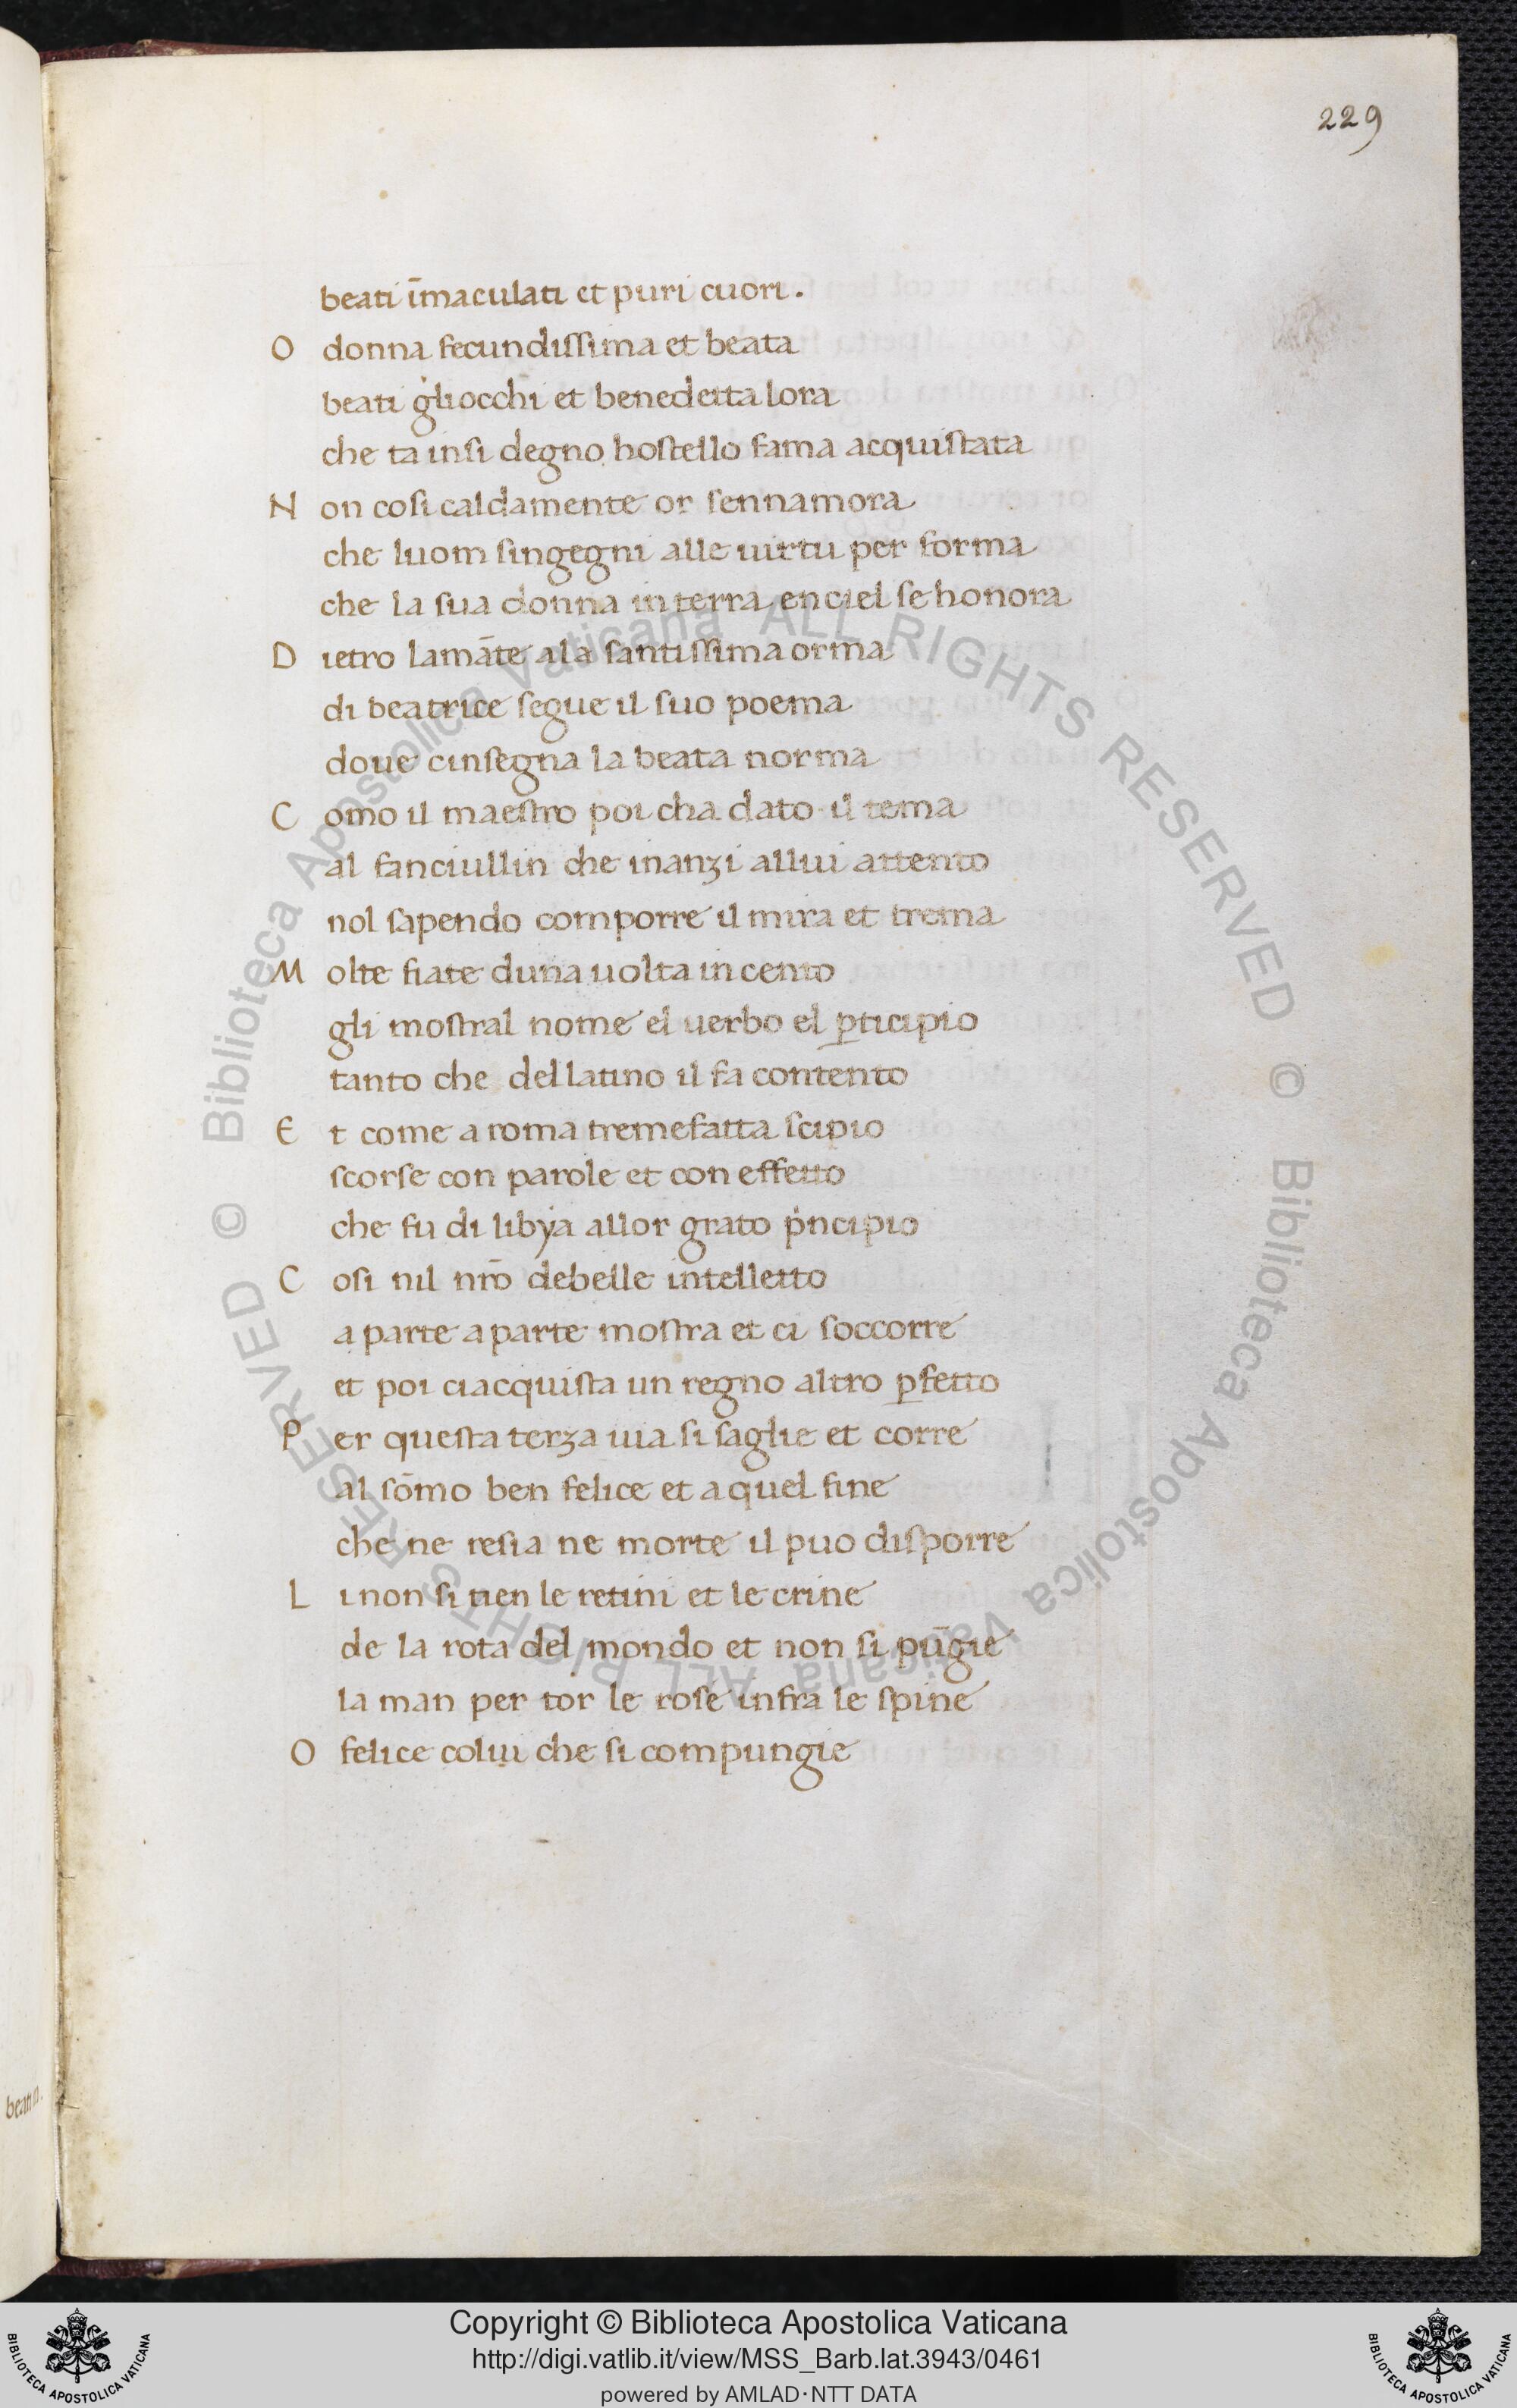 229
beati īmaculati et puri cuori.
O donna fecundiſſima et beata
beati gliocchi et benedetta lora
che ta inſi degno hoſtello fama acquiſtata
N on coſi caldamente or ſennamora
che luom ſingegni alle uirtu per forma
che la ſua donna in terra enciel ſe honora
D ietro lamāte ala ſantiſſima orma
di beatrice ſegue il ſuo poema
doue cinſegna la beata norma
C omo il maeſtro poi cha dato il tema
al fanciullin che inanzi allui attento
nol ſapendo comporre il mira et trema
M olte fiate duna uolta in cento
gli moſtral nome el uerbo el ꝑticipio
tanto che del latino il fa contento
E t come a roma tremefatta ſcipio
ſcorſe con parole et con effetto
che fu di libẏa allor grato pͥncipio
C oſi nil nr̄o debelle intelletto
a parte a parte moſtra et ci ſoccorre
et poi ciacquiſta un regno altro ꝑfetto
P er queſta terza uia ſi ſaglie et corre
al ſōmo ben felice et a quel fine
che ne reſia ne morte il puo diſporre
L i non ſi tien le retini et le crine
de la rota del mondo et non ſi pūgie
la man per tor le roſe infra le ſpine
O felice colui che ſi compungie
Copyright © Biblioteca Apostolica Vaticana
http://digi.vatlib.it/view/MSS_Barb.lat.3943/0461
powered by AMLAD·NTT DATA